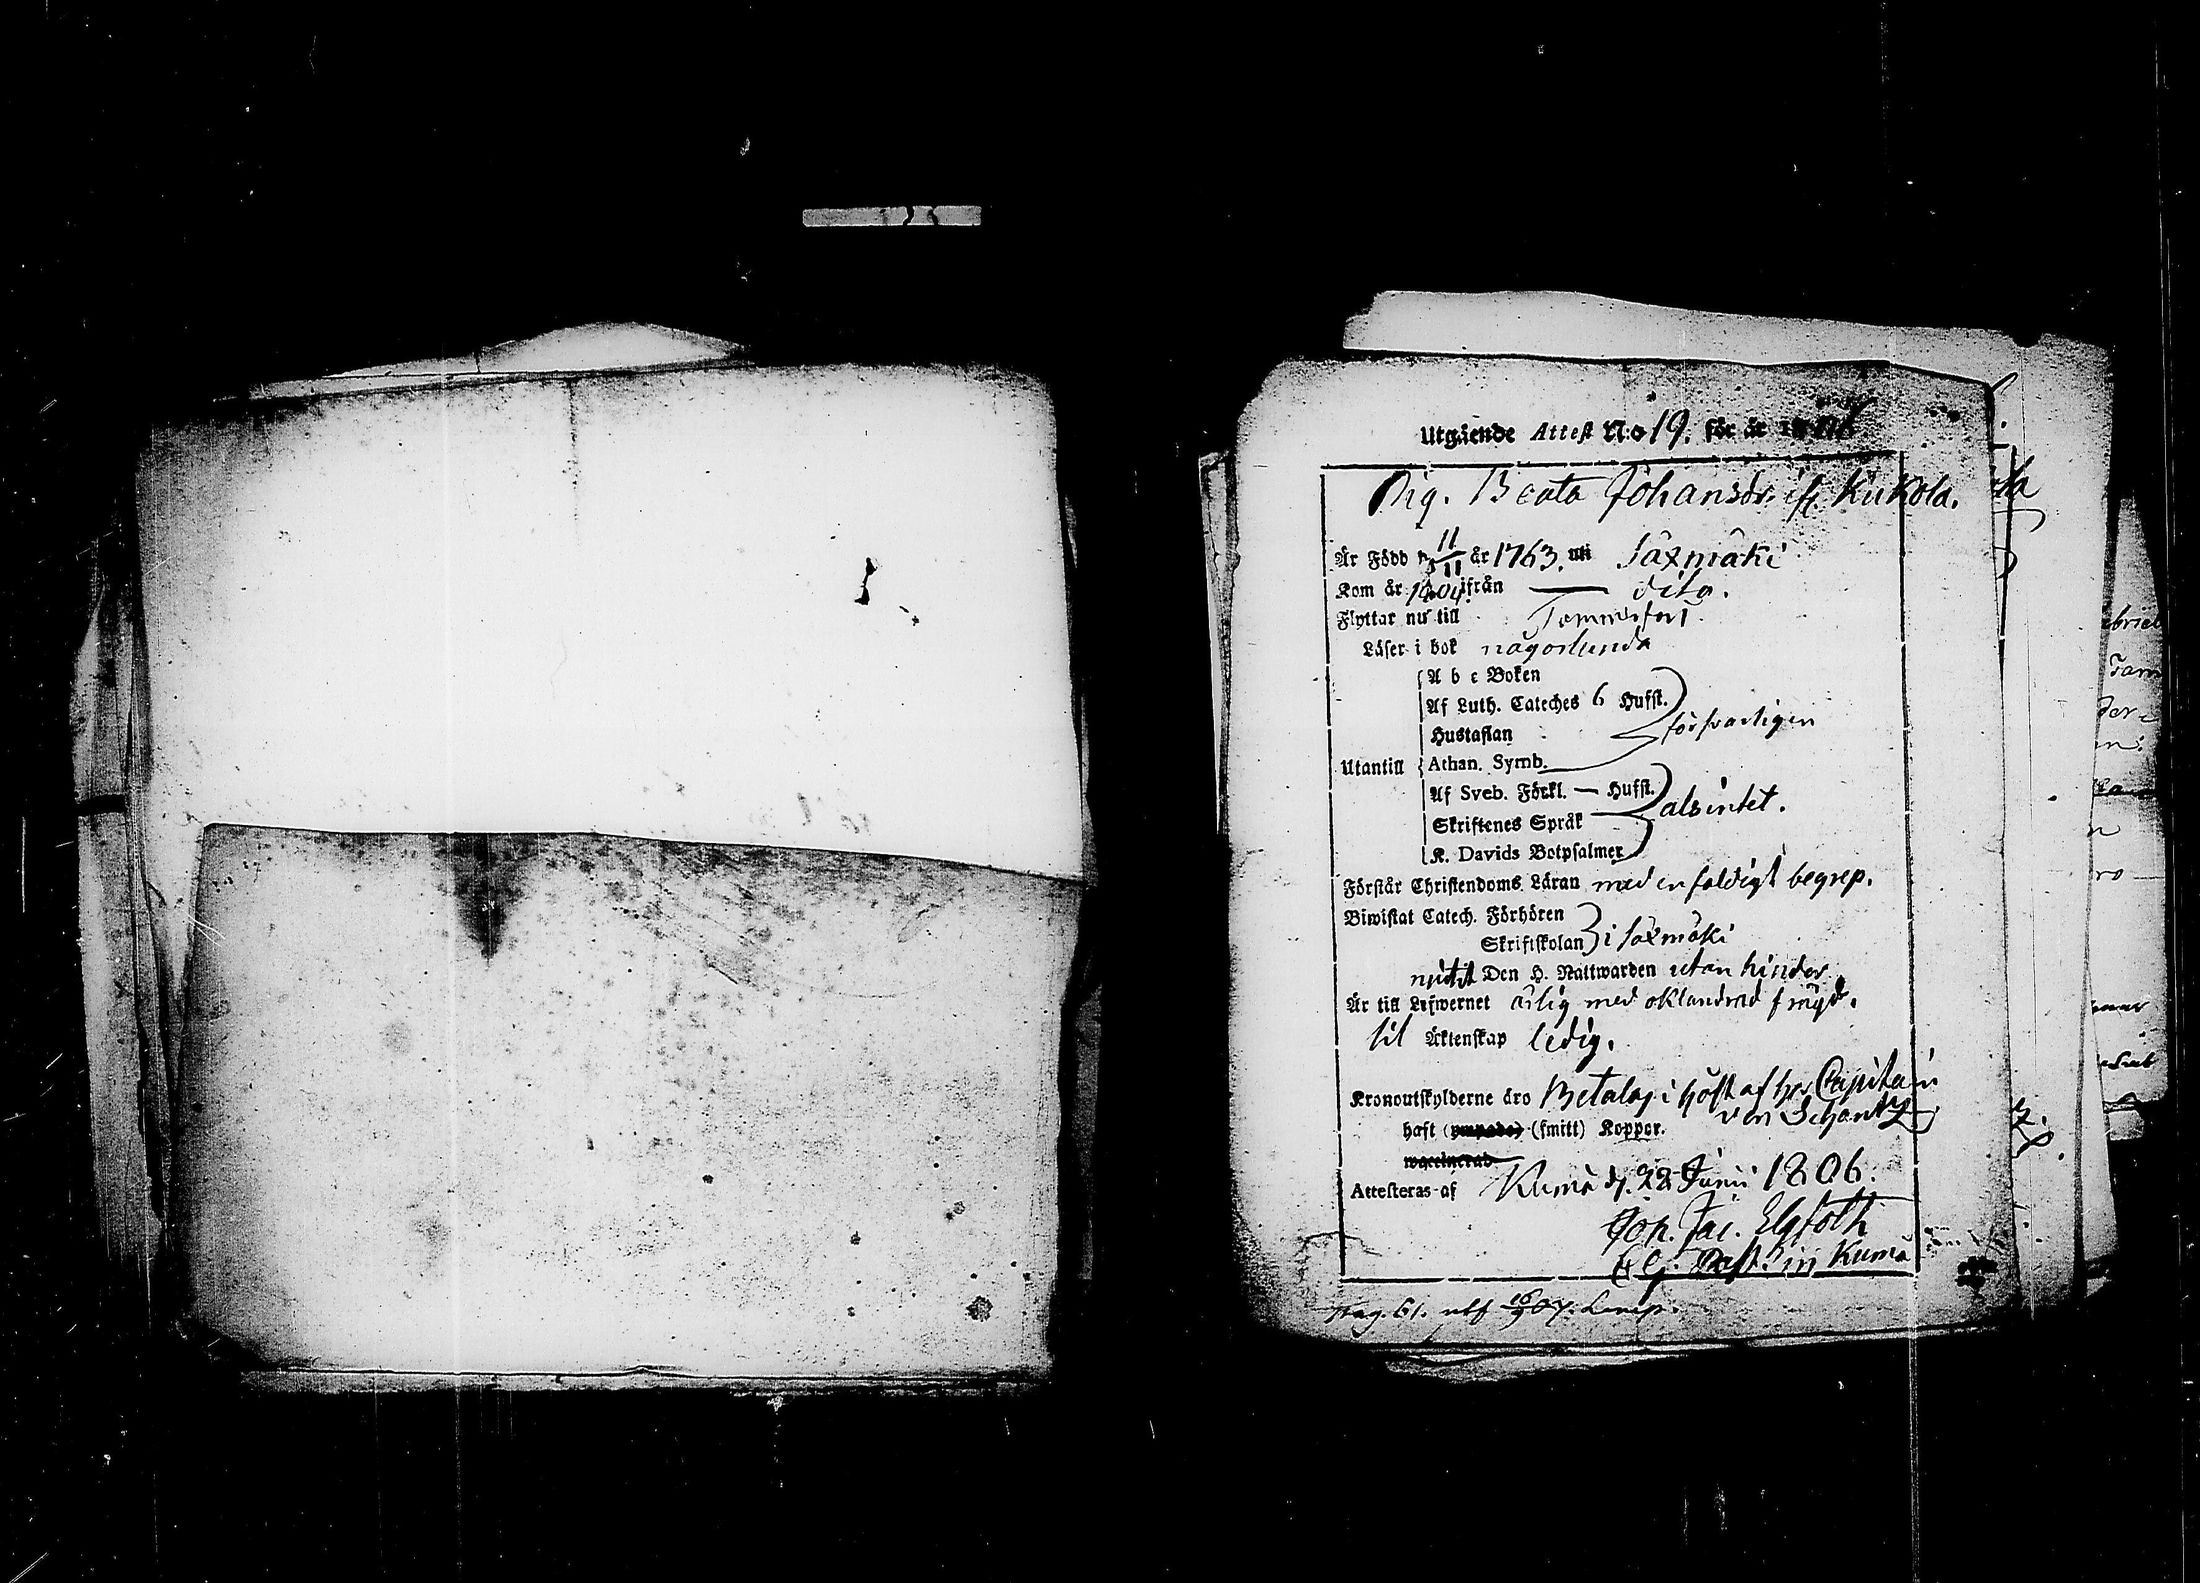 Utgående Attest N:o 19. för år 1806
Pig. Beata Johansdr. ifr. Kukola.
Är Född d. 11/11 år 1763. uti Säxmäki
Kom år 1804 ifrån — dito.
Flyttar nu till Tammerfors
Läser i bok någorlunda
A b c Boken
Af Luth. Cateches 6 Hufst.
Hustaflan försvarligen
Utantill Athan. Symb.
Af Sveb. Förkl. — Hufst.
Skriftenes Språk alsintet.
K. Davids Botpsalmer
Förstår Christendoms Läran med enfaldigt begrep.
Biwistat Catech. Förhören
Skriftskolan i Säxmäki
nyttjat Den H. Nattwarden utan hinder
Är till Lefwernet ärlig med oklandrad frägd.
til Äktenskap ledig.
Kronoutskylderne äro Betalas i höst af her Capitain
von Schantz
haft (ympade) (smitt) Koppor.
waccinerad
Attesteras af Kumå d. 22 Junii 1806.
Joh. Jac. Elgfoth
Past. in Kumå
pag. 61.